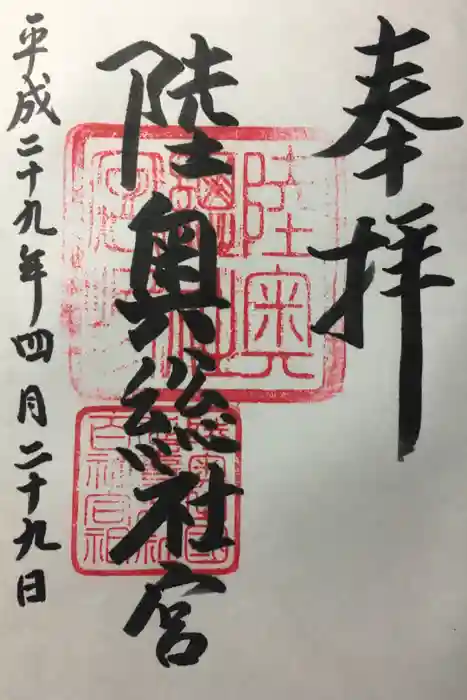 奉拝
陸奥総社宮
平成二十九年四月二十九日